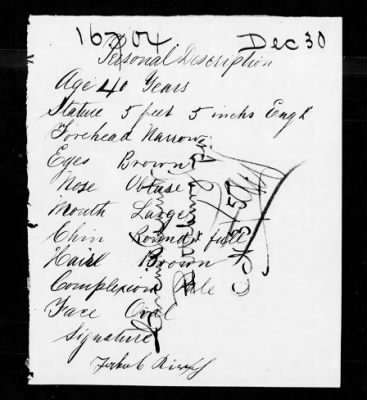 16204 Dec 30
Personal Description
Age 40 Years
Stature 5 feet 5 inchs Eng
Forehead Narrow
Eyes Brown
Nose Obtuse
Mouth Large
Chin Round & full
Hair Brown
Complexion Pale
Face Oval
Signature